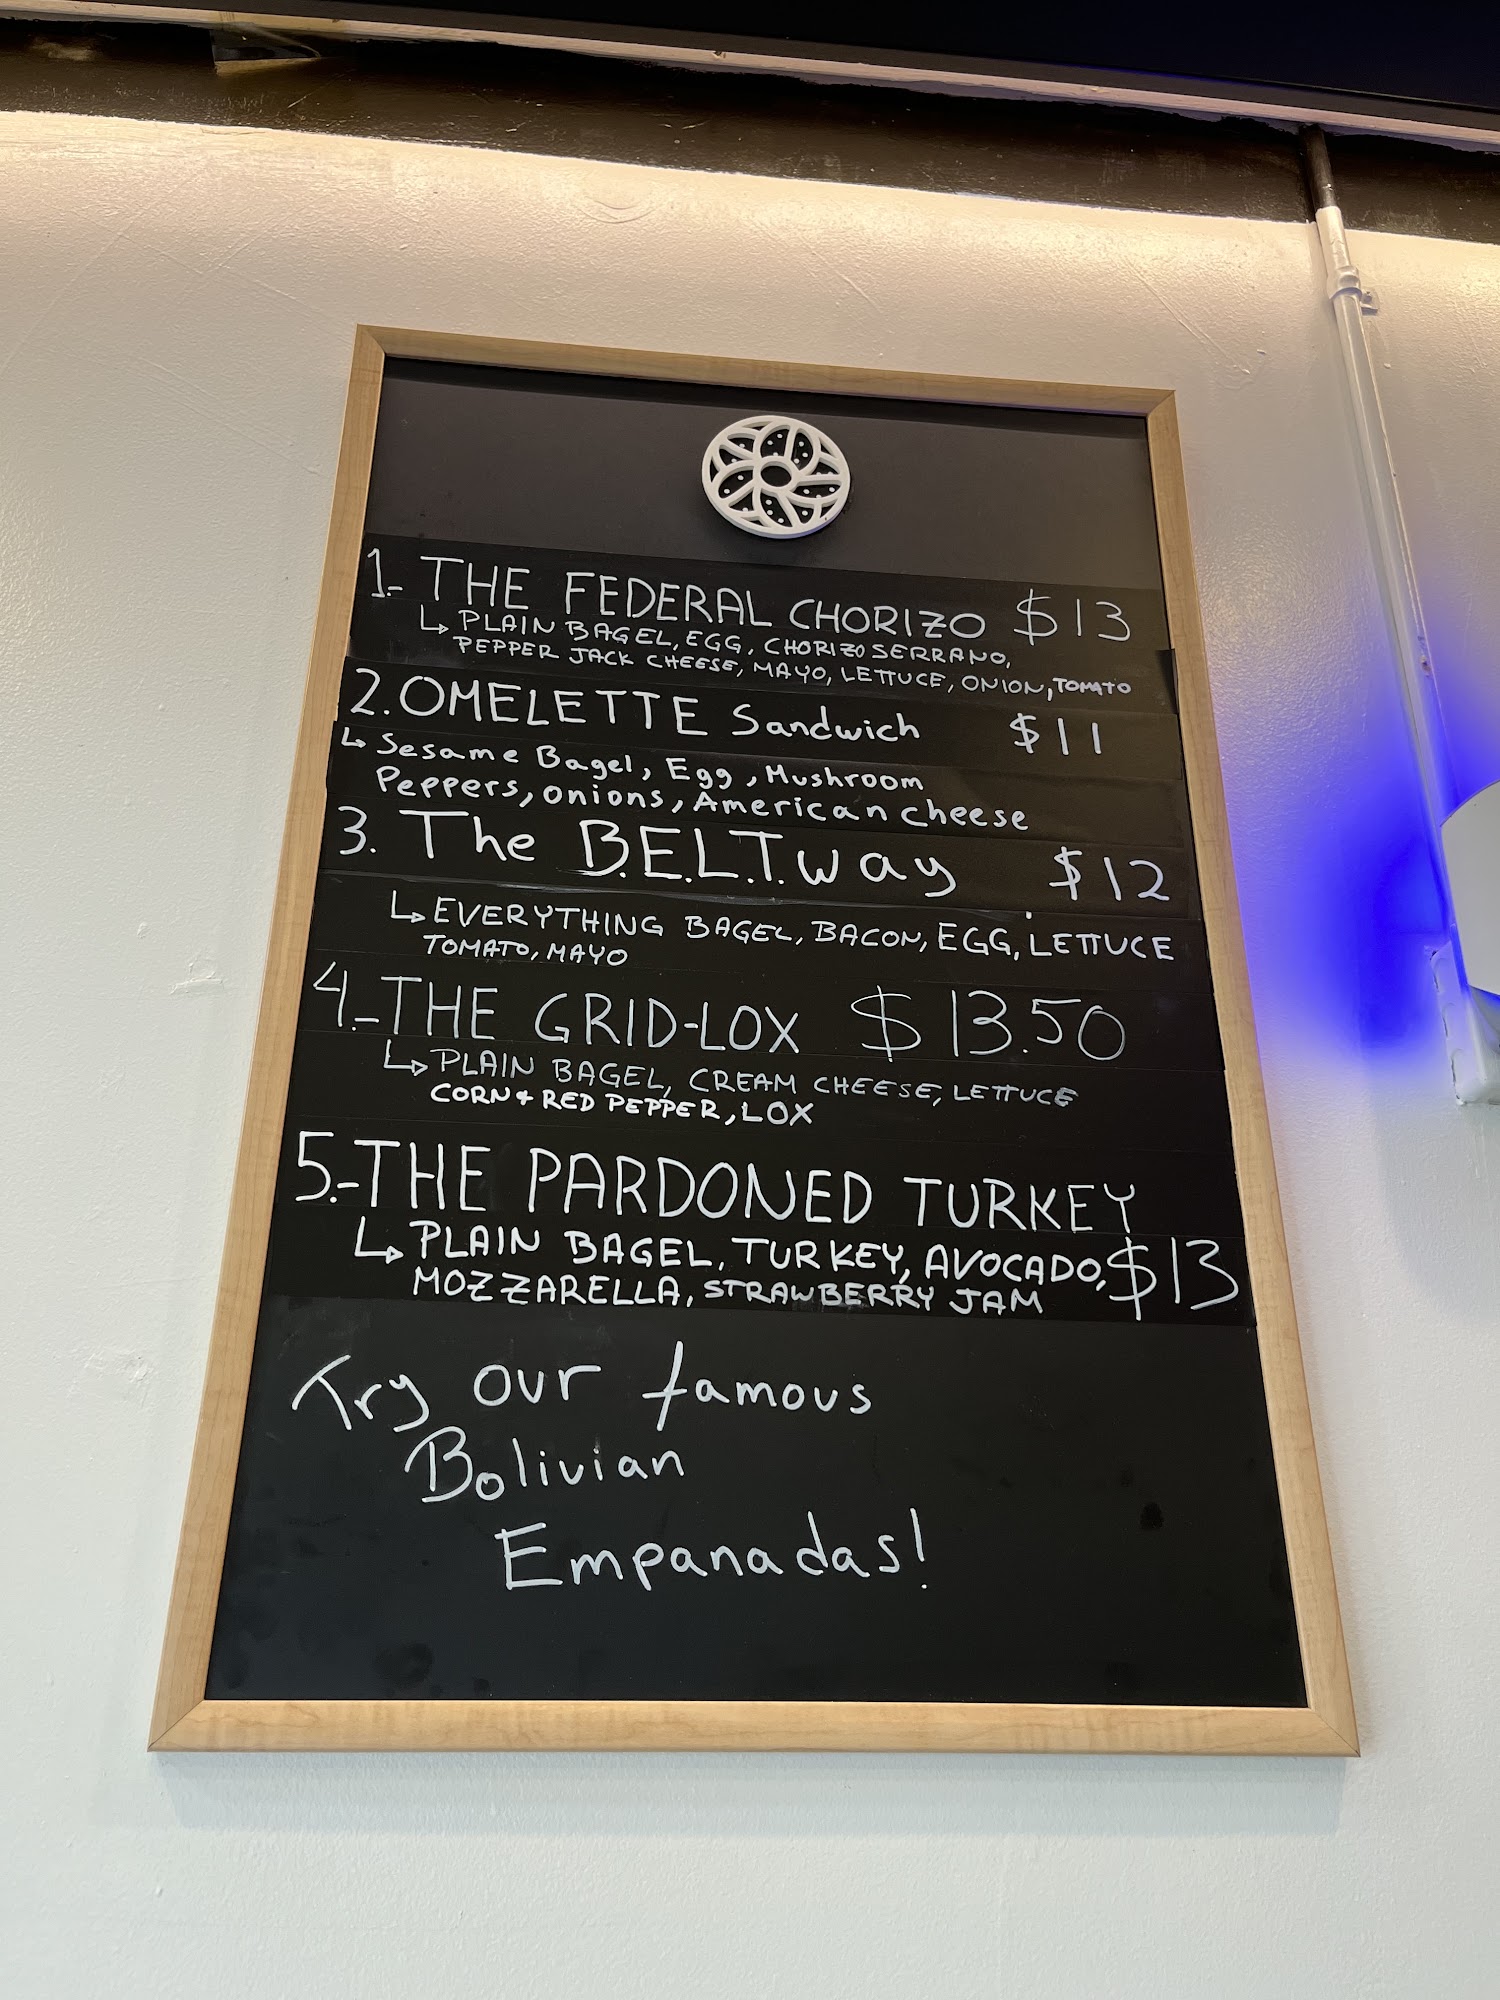 1- THE FEDERAL CHORIZO $13
↳ PLAIN BAGEL, EGG, CHORIZO SERRANO,
PEPPER JACK CHEESE, MAYO, LETTUCE, ONION, TOMATO
2. OMELETTE Sandwich $11
↳ Sesame Bagel, Egg, Mushroom
Peppers, onions, American cheese
3. The B.E.L.T.way $12
↳ EVERYTHING BAGEL, BACON, EGG, LETTUCE
TOMATO, MAYO
4.- THE GRID-LOX $13.50
↳ PLAIN BAGEL, CREAM CHEESE, LETTUCE
CORN & RED PEPPER, LOX
5.- THE PARDONED TURKEY
↳ PLAIN BAGEL, TURKEY, AVOCADO, $13
MOZZARELLA, STRAWBERRY JAM
Try our famous
Bolivian
Empanadas!